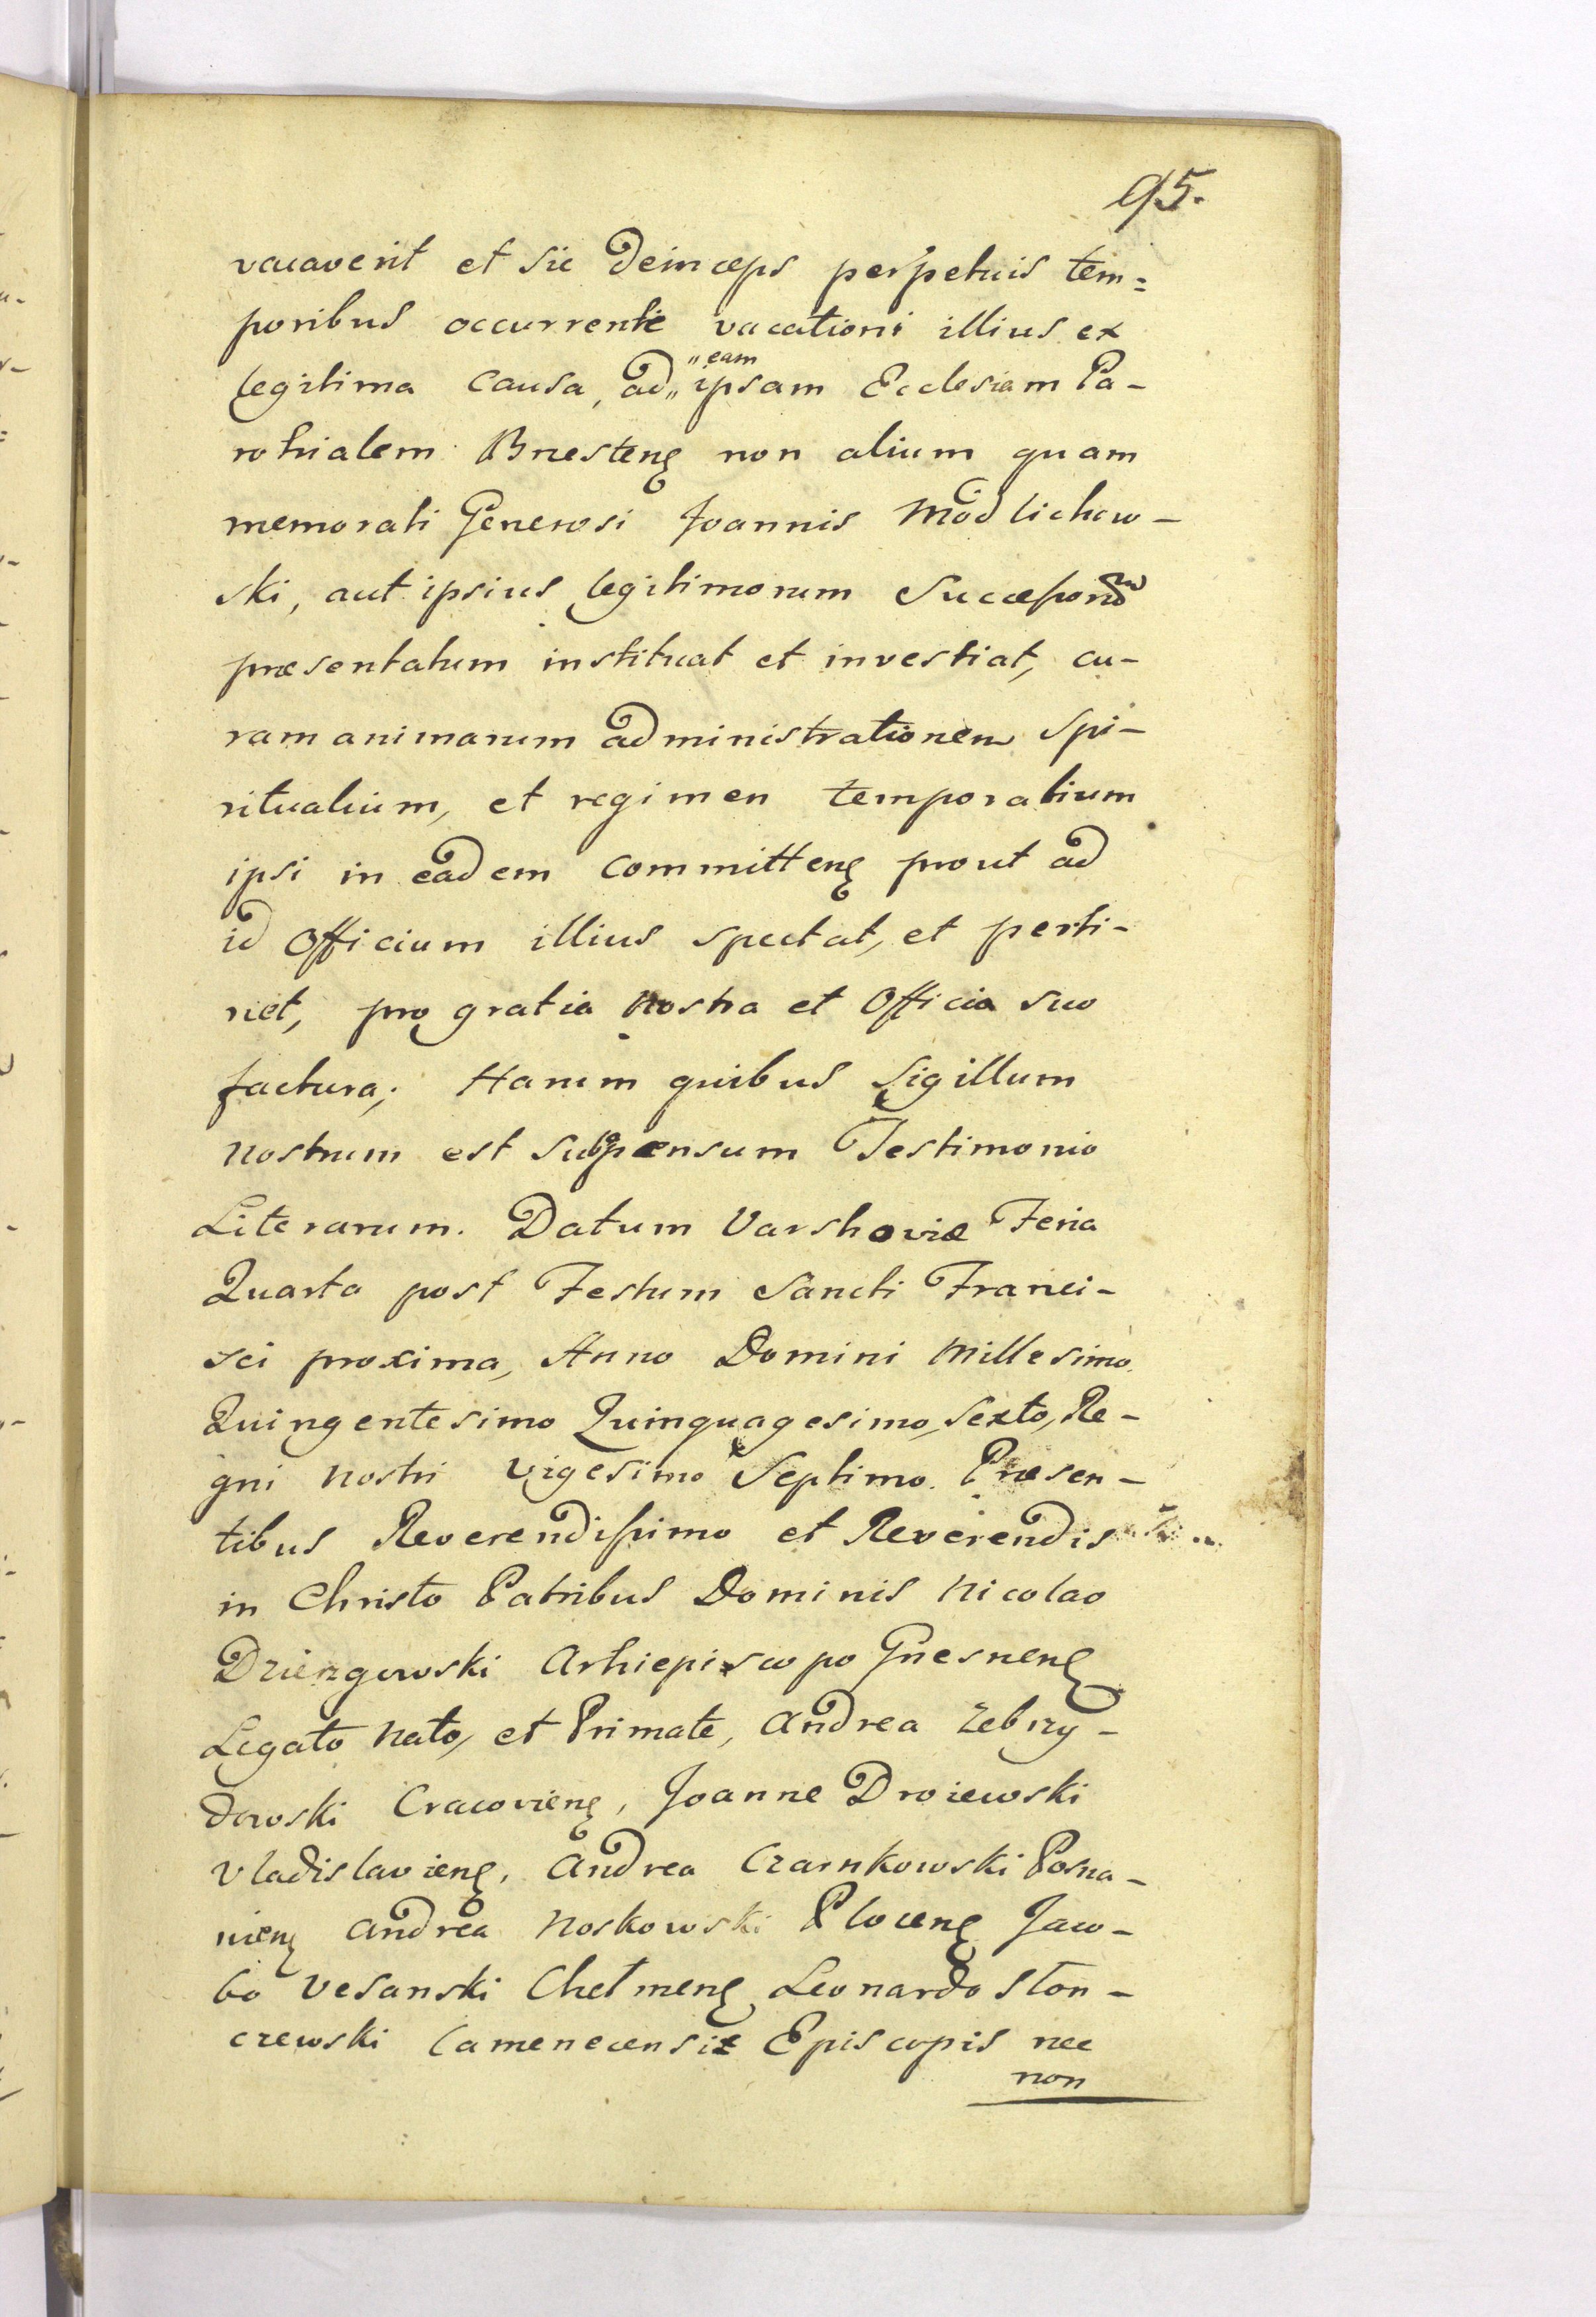 95.
vacaverit et sic deinceps perpetuis tem=
poribus occurrente vacationi illius ex
legitima causa, ad „eam„ ipsam Ecclesiam Pa-
rohialem Bresteng non alium quam
memorati Generosi Joannis Modlichow-
ski, aut ipsius legitimorum Successorum
præsentatum instituat et investiat, cu-
ram animarum administrationem spi-
ritualium, et regimen temporalium
ipsi in eadem committeng prout ad
id Officium illius spectat, et perti-
net, pro gratia nostra et Officia suo
factura; Harum quibus Sigillum
nostrum est subpensum Testimonio
Literarum. Datum Varshoviæ Feria
Quarta post Festum Sancti Franci-
sci proxima, Anno Domini Millesimo
Quingentesimo Quinquagesimo, Sexto, Re-
gni nostri vigesimo Septimo. Præsen-
tibus Reverendissimo et Reverendis
in Christo Patribus Dominis Nicolao
Dzierzgowski Arhiepiscopo Gnesneng
Legato Nato, et Primate, Andrea Zebrzy-
dowski Cracovieng, Joanne Droiewski
Vladislavieng, Andrea Czarnkowski Posna-
nieng Andrea Noskowski Ploceng Jaco-
bo Vesanski Chelmeng Leonardo Slon-
czewski Camenecensis Episcopis nec
non